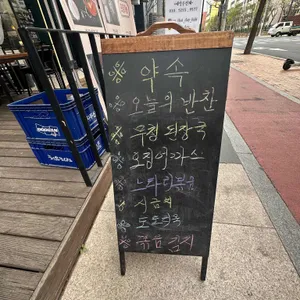 약속
오늘의 반찬
우렁 된장국
오징어까스
느타리볶음
시금치
도토리묵
볶음 김치